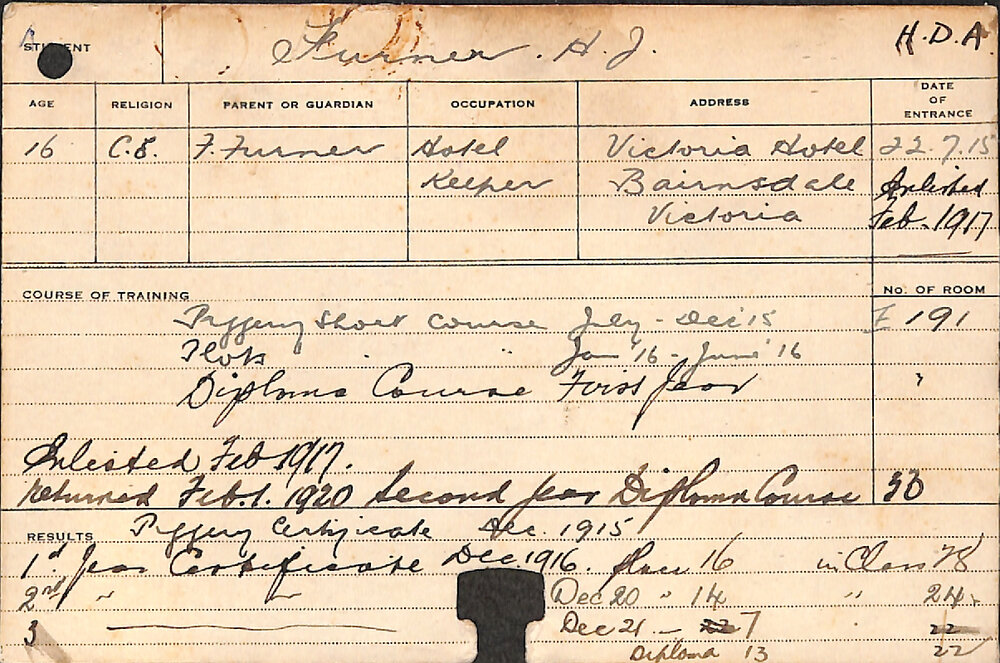 STUDENT Furner. H. J. H. D. A
AGE RELIGION PARENT OR GUARDIAN OCCUPATION ADDRESS DATE OF ENTRANCE
16 C.E. F. Furner Hotel Victoria Hotel 22.7.15
Keeper Bairnsdale Enlisted
Victoria Feb. 1917
COURSE OF TRAINING No. OF ROOM
Piggery Short Course July - Dec '15 E 191
Plots Jan '16 - June '16
Diploma Course First Year "
Enlisted Feb 1917.
Returned Feb. 1. 1920 Second Year Diploma Course 50
RESULTS Piggery Certificate Dec. 1915
1st Year Certificate Dec. 1916. place 16 in Class 78
2nd " " Dec 20 " 14 " 24
3 Dec 21 - 22 7 " 22
Diploma 13 22